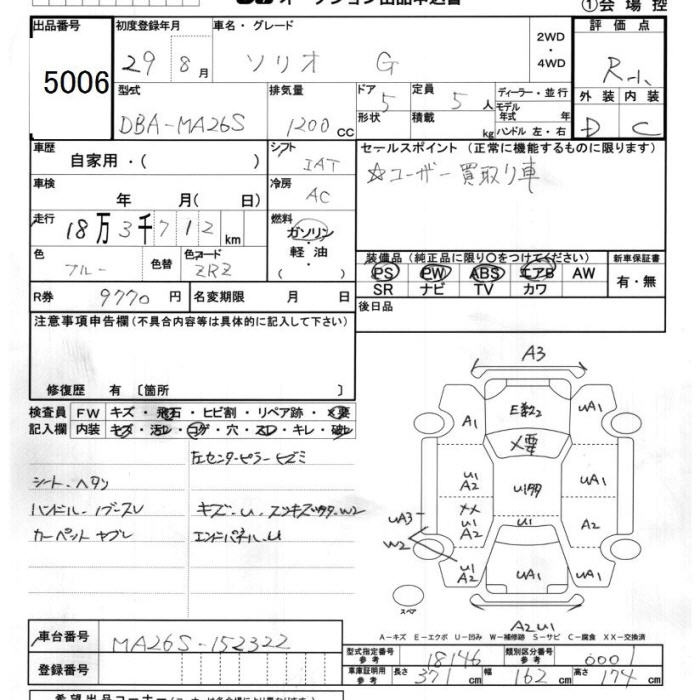 オークション出品申込書
①会場控
出品番号
5006
初度登録年月
29 8月
車名・グレード
ソリオ G
2WD
・
4WD
評価点
R-1
外装 内装
D C
型式
DBA-MA26S
排気量
1200 CC
ドア 5
形状
定員 5 人
積載 kg
ディーラー・並行
モデル年式 年
ハンドル 左・右
車歴
自家用・( )
シフト
IAT
冷房
AC
車検
年 月(日)
走行
18万3千712 km
燃料
ガソリン
・
軽・油
・( )
色
ブルー
色替
色コード
ZRZ
R券 9770 円
名変期限 月 日
セールスポイント(正常に機能するものに限ります)
☆ユーザー買取り車
装備品(純正品に限り○をつけてください)
PS PW ABS エアB AW
SR ナビ TV カワ
新車保証書
有・無
後日品
注意事項申告欄(不具合内容等は具体的に記入して下さい)
修復歴 有〔箇所 〕
検査員記入欄
FW キズ・飛石・ヒビ割・リペア跡・×要
内装 キズ・汚レ・コゲ・穴・スレ・キレ・破レ
左センターピラーヒズミ
シート・ヘタリ
ハンドル・ノブースレ
キズ・U・スリキズ
W2
カーペットヤブレ
エンドパネル・U
A3
E数2
A1
UA1
×要
U1
A2
UA1
××
U1
A2
A2
U1
UA3
W2
U1
A2
UA1
UA1
スペア
A2U1
A-キズ E-エクボ U-凹み W-補修跡 S-サビ C-腐食 XX-交換済
車台番号
MA26S-152322
登録番号
型式指定番号
参考
18146
類別区分番号
参考
0001
車庫証明用
参考
長さ 371 cm
幅 162 cm
高さ 174 cm